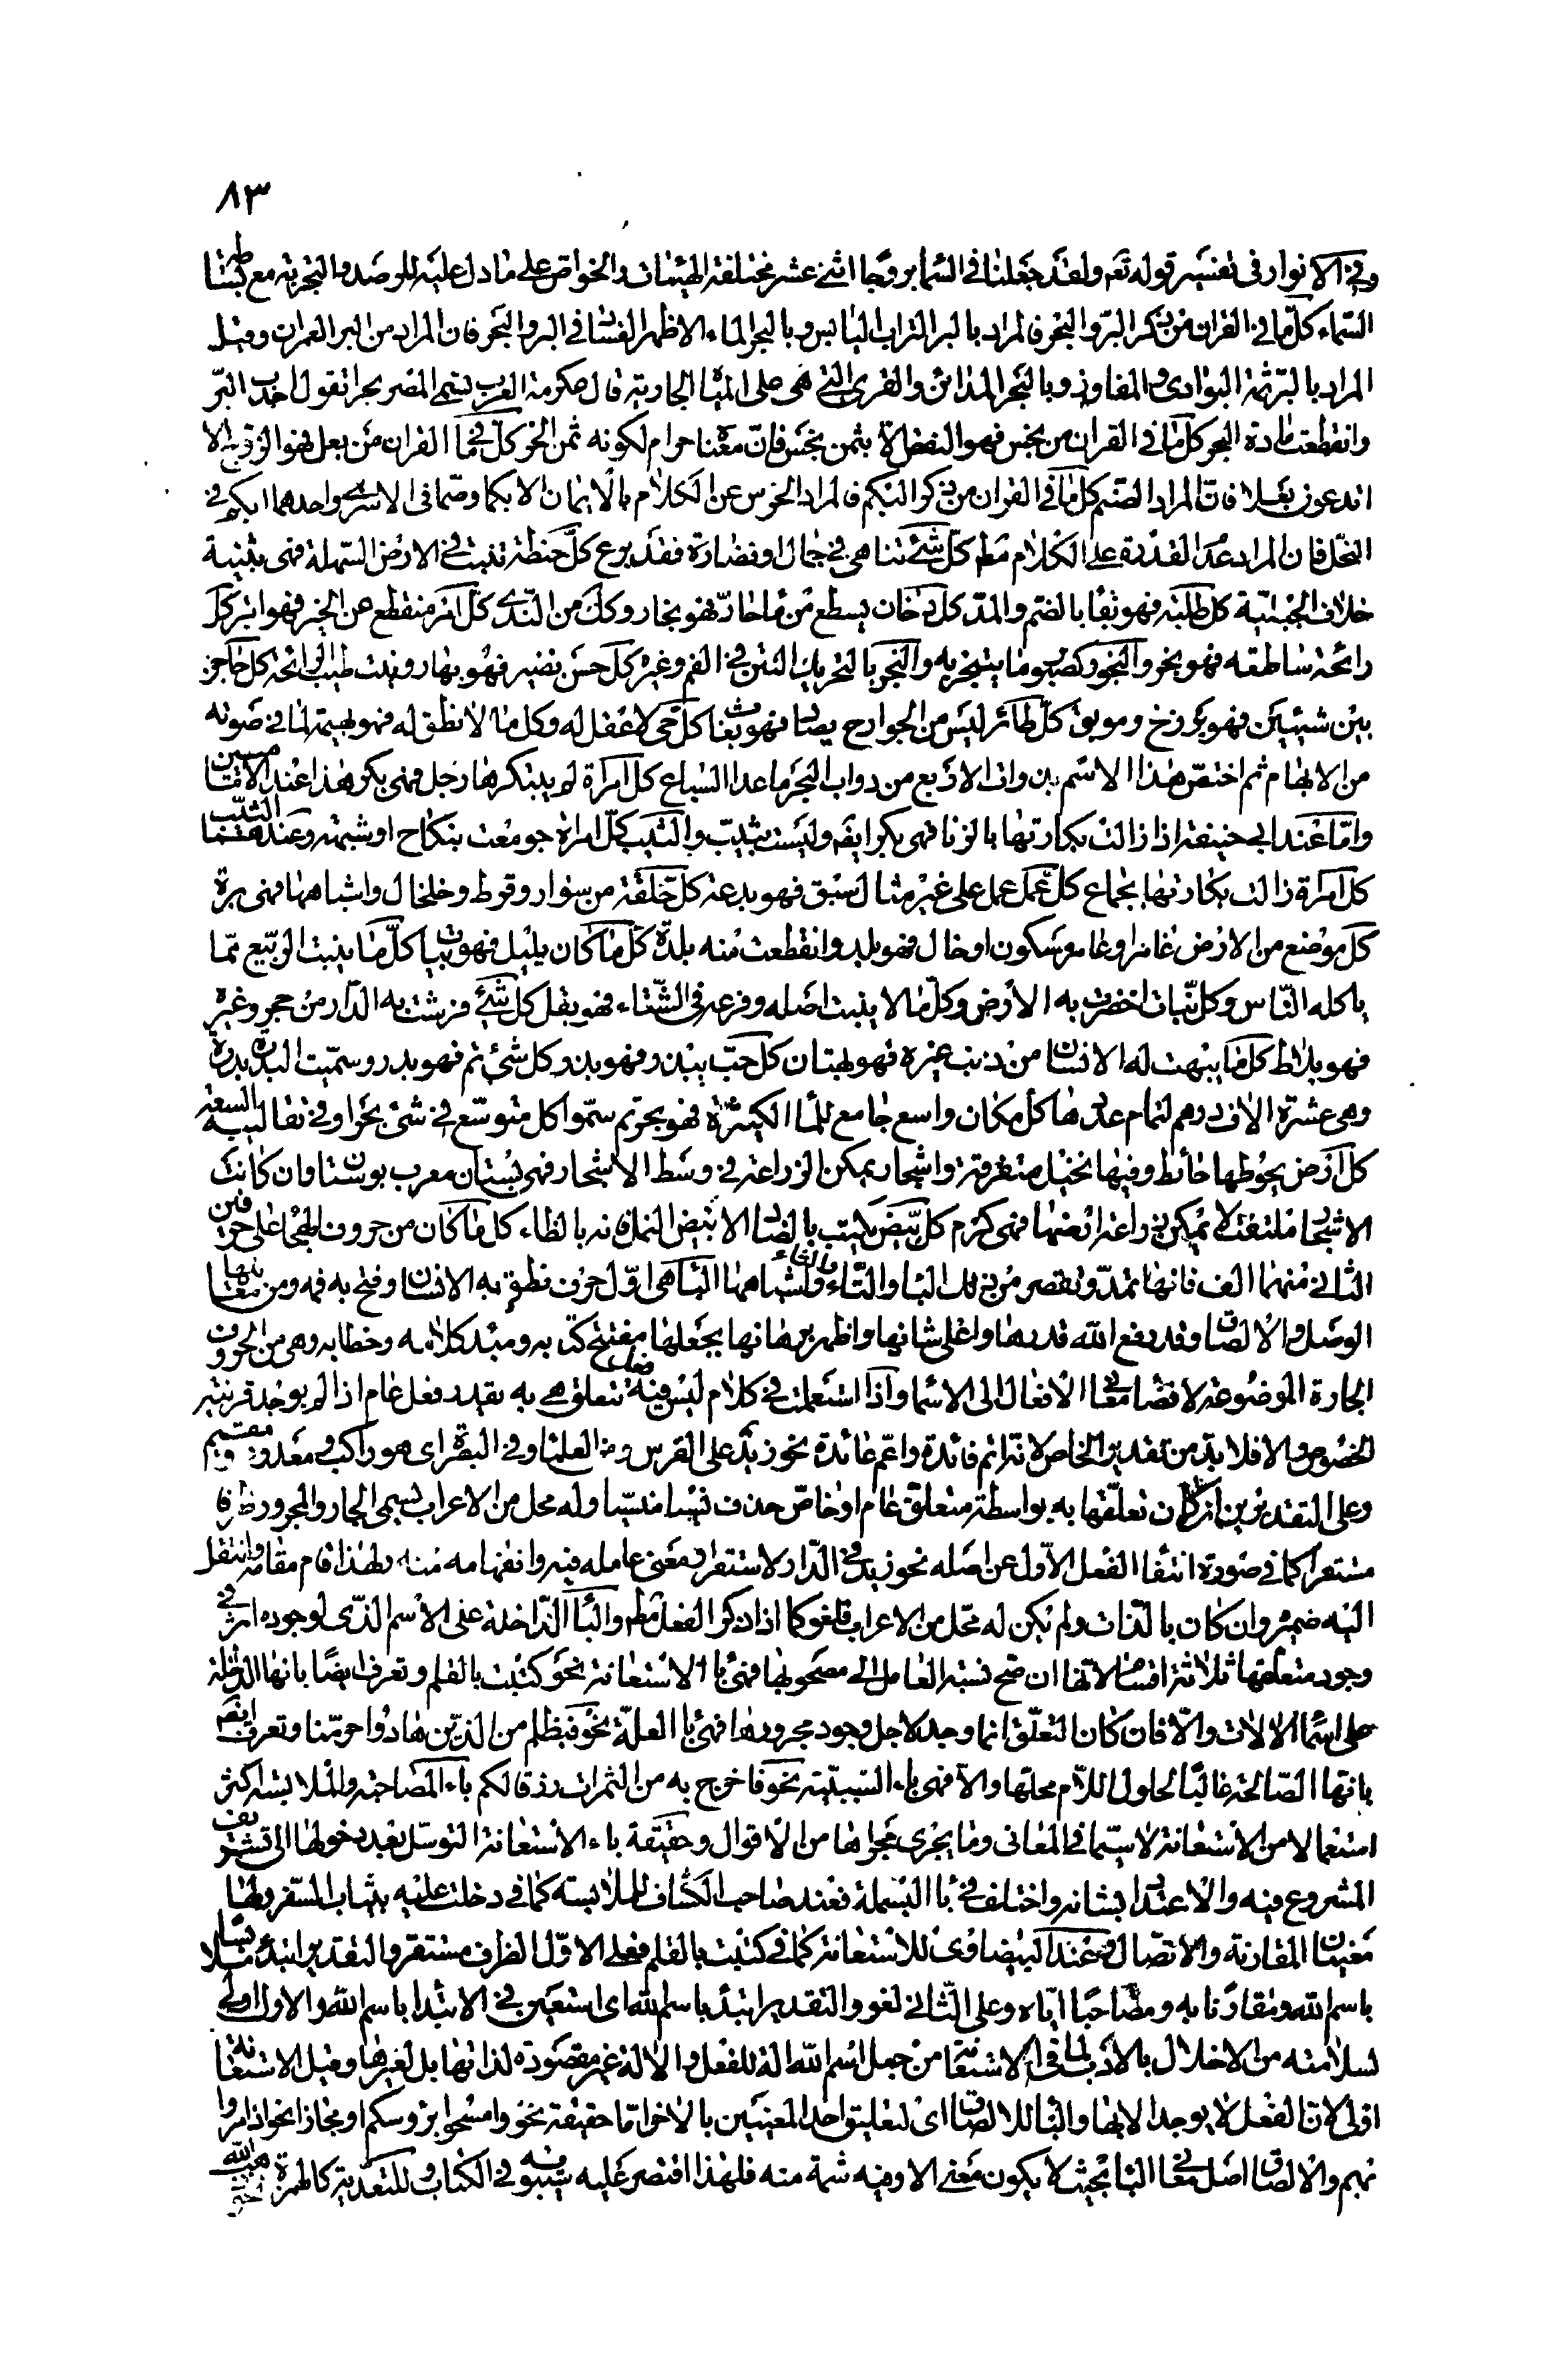 ٨٣
وفي الانوار في تفسير قوله تعم ولقد جعلنا في السماء بروجا اثني عشر مختلفة الهيئات والخواص على ما دل عليه الرصد والتجربة مع بساطة
السماء كل ما في القران من ذكر البر والبحر فالمراد بالبر التراب اليابس وبالبحر الماء الا ظهر الفساد في البر والبحر فان المراد من البر العمران وقيل
المراد بالبر ثمة البوادى والمفاوز وبالبحر المدائن والقرى التي هي على المياه الجارية قال عكرمة العرب تسمى المصر بحرا تقول اجدب البر
وانقطعت مادة البحر كل ما في القران من بخس فهو النقص الا بثمن بخس فان معناه حرام لكونه ثمن الحر كل ما في القران من بعل فهو الزوج الا
اتدعون بعلا فان المراد الصنم كل ما في القران من ذكر البكم فالمراد الخرس عن الكلام بالايمان الا بكما وصما في الاسرى واحدهما ابكم في
النحل فان المراد عدم القدرة على الكلام مطم كل شئ تناهى في جمال او نضارة فقد برع كل حنطة تنبت في الارض السهلة فهي بثنية
خلاف الجبلية كل طلبته فهو بغاء بالضم والمد كل دخان يسطع من ماء حار فهو بخار وكك من الندى كل امر منقطع عن الخير فهو ابتر كل
رائحة ساطعه فهو بخر والبخور كصبور ما يتبخر به والبخر بالتحريك النتن في الفم وغيره كل حسن نضير فهو بهار ونبت طيب الرائحة كل حاجز
بين شيئين فهو برزخ وموبق كل طائر ليس من الجوارح يصاد فهو بغاث كل حى لا عقل له وكل ما لا نطق له فهو بهيمة لما في صوته
من الابهام ثم اختص هذا الاسم بذوات الاربع من دواب البحر ما عدا السباع كل امراة لم يبتكرها رجل فهي بكر هذا عند الامامين
واما عند ابي حنيفة اذا زالت بكارتها بالزنا فهي بكر ايضم وليست بثيب والثيب كل امراة جومعت بنكاح او شبهة وعندهما الثيب
كل امراة زالت بكارتها بجماع كل عمل عمل على غير مثال سبق فهو بدعة كل حلقة من سوار وقرط وخلخال واشباهها فهي برة
كل موضع من الارض عامرا وغامر مسكون او خال فهو بلد وانقطعت منه بلدة كل ما كان بليل فهو بيات كل ما ينبت الربيع مما
ياكله الناس وكل نبات اخضرت به الارض وكل ما لا ينبت اصله وفرعه في الشتاء فهو بقل كل شئ فرشت به الدار من حجر وغيره
فهو بلاط كل ما يبهت له الانسان من ذنب غيره فهو بهتان كل حب يبذر فهو بذر وكل شئ تم فهو بدر وسميت البدرة بدرة
وهي عشرة الاف درهم لتمام عددها كل مكان واسع جامع للماء الكثيرة فهو بحر ثم سموا كل متوسع في شئ بحرا وفي نقاليبه السعة
كل ارض يحوطها حائط وفيها نخيل متفرقة واشجار يمكن الزراعة في وسط الاشجار فهي بستان معرب بوستان وان كانت
الاشجار ملتفة لا يمكن زراعة ارضها فهي كرم كل بيض يكتب بالضاد الا بيض النمل فانه بالظاء كل ما كان من حروف الهجاء على حرفين
الثاني منهما الف فانها تمد وتقصر من ذلك الباء والتاء والثاء واشباهها الباء هي اول حرف نطق به الانسان وفتح به فمه ومن معانيها
الوصل والالصاق وقد رفع الله قدرها واعلى شانها واظهر برهانها بجعلها مفتتح كتابه ومبتدء كلامه وخطابه وهي من الحروف
الجارة الموضوعة لافضاء معاني الافعال الى الاسماء واذا استعملت في كلام ليس فيه فعل تتعلق هي به يقدر فعل عام اذا لم يوجد قرينة
الخصوص والا فلا بد من تقدير الخاص لانه اتم فائدة واعم عائدة نحو زيد على الفرس ومن العلماء وفي البصرة اى هو راكب ومعدود ومقيم
وعلى التقديرين ان كان تعلقها به بواسطة متعلق عام او خاص حذف نسيا منسيا وله محل من الاعراب يسمى الجار والمجرور ظرفا
مستقرا كما في صورة انتفاء الفعل الاول عن اصله نحو زيد في الدار لاستقرار معنى عامله فيه وانفهامه منه ولهذا قام مقامه وانتقل
اليه ضميره وان كان بالذات ولم يكن له محل من الاعراب فلغو كما اذا ذكر الفعل مطم والباء الداخلة على الاسم الذى لوجوده اثر في
وجود متعلقها ثلاثة اقسام لانها ان صح نسبة العامل الى مصحوبها فهي باء الاستعانة نحو كتبت بالقلم وتعرف ايضا بانها الداخلة
على اسماء الالات والا فان كان التعلق انما وجد لاجل وجود مجرورها فهي باء العلة نحو فبظلم من الذين هادوا حرمنا وتعرف ايضم
بانها الصالحة غالبا لحلول اللام محلها والا فهي باء السببية نحو فاخرج به من الثمرات رزقا لكم باء المصاحبة والملابسة اكثر
استعمالا من الاستعانة لا سيما في المعاني وما يجرى مجراها من الاقوال وحقيقة باء الاستعانة التوسل بعد دخولها الى تشريف
المشروع فيه والاعتداد بشانه واختلف في باء البسملة فعند صاحب الكشاف للملابسة كما في دخلت عليه بثياب السفر ولها
معنيان المقارنة والاتصال وعند البيضاوى للاستعانة كما في كتبت بالقلم فعلى الاول الظرف مستقر والتقدير ابتدء ملابسا
باسم الله ومقارنا به ومصاحبا اياه وعلى الثاني لغو والتقدير ابتدء باسم الله اى استعين في الابتدا باسم الله والاول اولى
لسلامته من الاخلال بالادب لما في الاستعانة من جعل اسم الله الة للفعل والالة غير مقصودة لذاتها بل لغيرها وقيل الاستعانة
اولى لان الفعل لا يوجد الا بها والباء للالصاق اى لتعليق احد المعنيين بالاخر اما حقيقة نحو وامسحوا برؤسكم او مجازا نحو اذا مروا
بهم والالصاق اصل معاني الباء بحيث لا يكون معنى الا وفيه شمة منه فلهذا اقتصر عليه سيبويه في الكتاب وللتعدية كالهمزة نحو ذهب الله